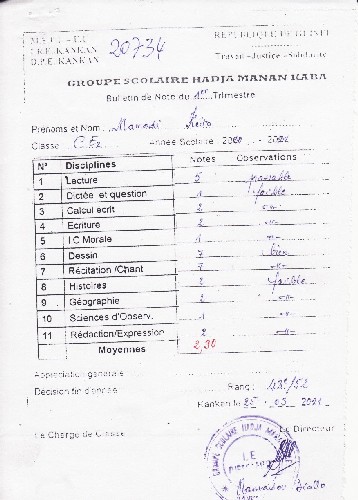 I.R.E. KANKAN
D.P.E. KANKAN
20734
REPUBLIQUE DE GUINEE
Travail -Justice -Solidarité
GROUPE SCOLAIRE HADJA MANAN KABA
Bulletin de Note du 1er Trimestre
Prénoms et Nom: Mamadi Keita
Classe: CE2 Année Scolaire
N° Disciplines Notes Observations
1 Lecture 5 passable
2 Dictée et question 1 faible
3 Calcul ecrit 2 -"-
4 Ecriture 2 -"-
5 I.C Morale 1 -"-
6 Dessin 7 bien
7 Récitation /Chant 7 -"-
8 Histoires 2 faible
9 Géographie 2 -"-
10 Sciences d'Observ. 1 -"-
11 Rédaction/Expression 2 -"-
Moyennes 2,30
Appréciation générale
Décision fin d'année Rang: 48e/52
Kankan le 25 - 03
Le Chargé de Classe Le Directeur
GROUPE SCOLAIRE HADJA
LE